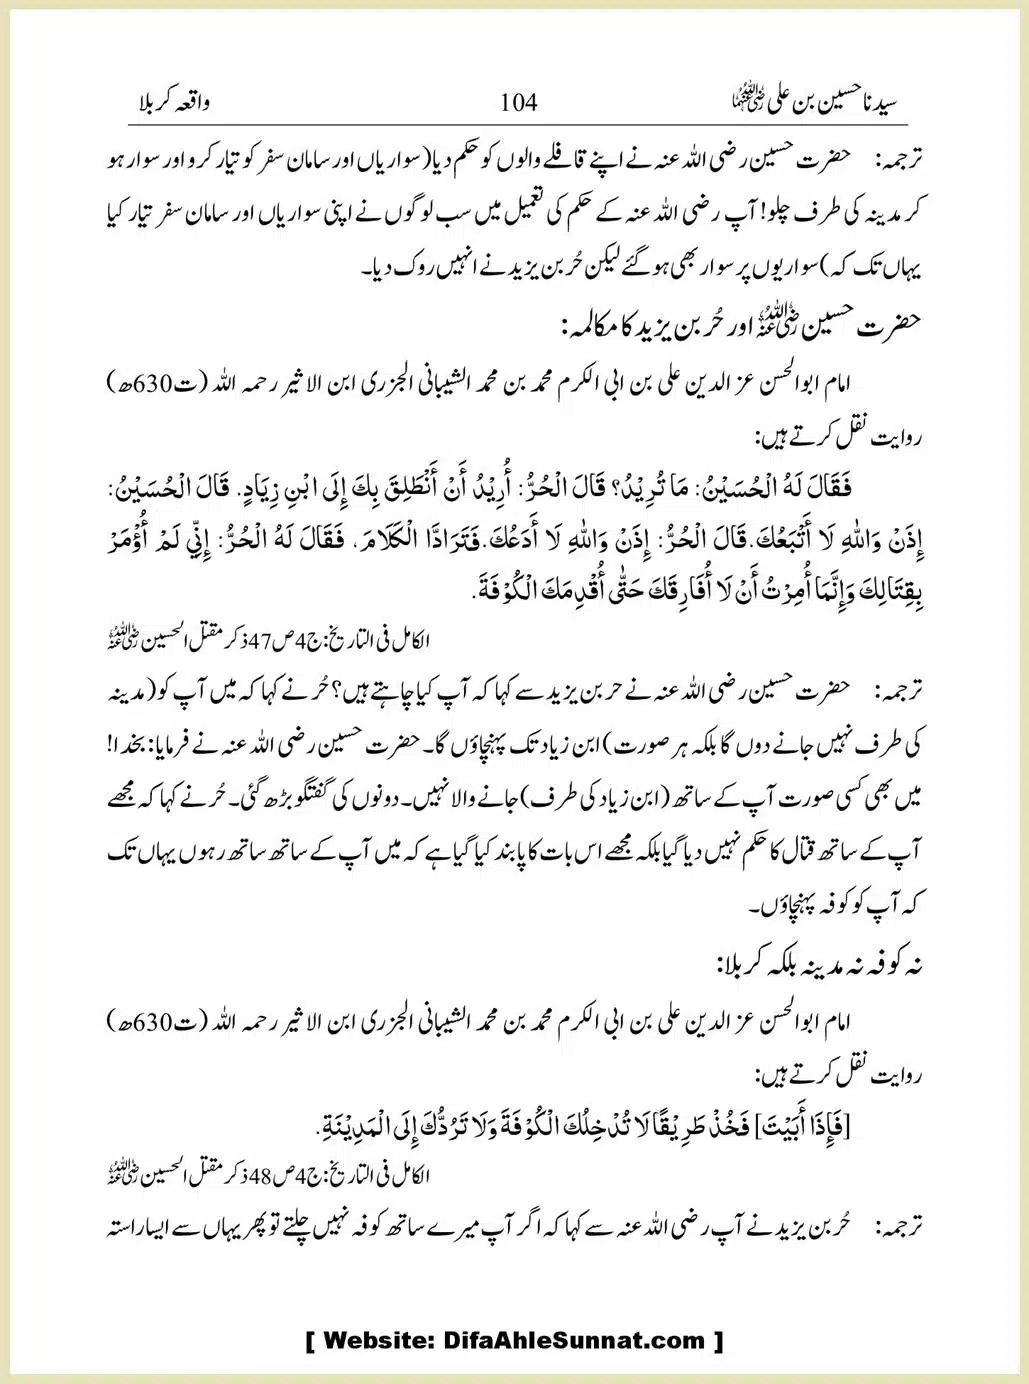 سیدنا حسین بن علی رضی اللہ عنہما 104 واقعہ کربلا
ترجمہ: حضرت حسین رضی اللہ عنہ نے اپنے قافلے والوں کو حکم دیا(سواریاں اور سامان سفر کو تیار کرو اور سوار ہو
کر مدینہ کی طرف چلو! آپ رضی اللہ عنہ کے حکم کی تعمیل میں سب لوگوں نے اپنی سواریاں اور سامان سفر تیار کیا
یہاں تک کہ) سواریوں پر سوار بھی ہو گئے لیکن حُر بن یزید نے انہیں روک دیا۔
حضرت حسین رضی اللہ عنہ اور حُر بن یزید کا مکالمہ:
امام ابو الحسن عز الدین علی بن ابی الکرم محمد بن محمد الشیبانی الجزری ابن الاثیر رحمہ اللہ (ت630ھ)
روایت نقل کرتے ہیں:
فَقَالَ لَهُ الْحُسَيْنُ: مَا تُرِيْدُ؟ قَالَ الْحُرُّ: أُرِيْدُ أَنْ أَنْطَلِقَ بِكَ إِلَى ابْنِ زِيَادٍ. قَالَ الْحُسَيْنُ:
إِذَنْ وَاللهِ لَا أَتْبَعُكَ. قَالَ الْحُرُّ: إِذَنْ وَاللهِ لَا أَدَعُكَ. فَتَرَادَّا الْكَلَامَ، فَقَالَ لَهُ الْحُرُّ: إِنِّي لَمْ أُؤْمَرْ
بِقِتَالِكَ وَإِنَّمَا أُمِرْتُ أَنْ لَا أُفَارِقَكَ حَتّٰى أُقْدِمَكَ الْكُوْفَةَ.
الکامل فی التاریخ: ج4 ص47 ذکر مقتل الحسین رضی اللہ عنہ
ترجمہ: حضرت حسین رضی اللہ عنہ نے حر بن یزید سے کہا کہ آپ کیا چاہتے ہیں؟ حُر نے کہا کہ میں آپ کو (مدینہ
کی طرف نہیں جانے دوں گا بلکہ ہر صورت) ابن زیاد تک پہنچاؤں گا۔ حضرت حسین رضی اللہ عنہ نے فرمایا: بخدا!
میں بھی کسی صورت آپ کے ساتھ (ابن زیاد کی طرف) جانے والا نہیں۔ دونوں کی گفتگو بڑھ گئی۔ حُر نے کہا کہ مجھے
آپ کے ساتھ قتال کا حکم نہیں دیا گیا بلکہ مجھے اس بات کا پابند کیا گیا ہے کہ میں آپ کے ساتھ ساتھ رہوں یہاں تک
کہ آپ کو کوفہ پہنچاؤں۔
نہ کوفہ نہ مدینہ بلکہ کربلا:
امام ابو الحسن عز الدین علی بن ابی الکرم محمد بن محمد الشیبانی الجزری ابن الاثیر رحمہ اللہ (ت630ھ)
روایت نقل کرتے ہیں:
[فَإِذَا أَبَيْتَ] فَخُذْ طَرِيْقًا لَا تُدْخِلُكَ الْكُوْفَةَ وَلَا تَرُدُّكَ إِلَى الْمَدِيْنَةِ.
الکامل فی التاریخ: ج4 ص48 ذکر مقتل الحسین رضی اللہ عنہ
ترجمہ: حُر بن یزید نے آپ رضی اللہ عنہ سے کہا کہ اگر آپ میرے ساتھ کوفہ نہیں چلتے تو پھر یہاں سے ایسا راستہ
[ Website: DifaAhleSunnat.com ]